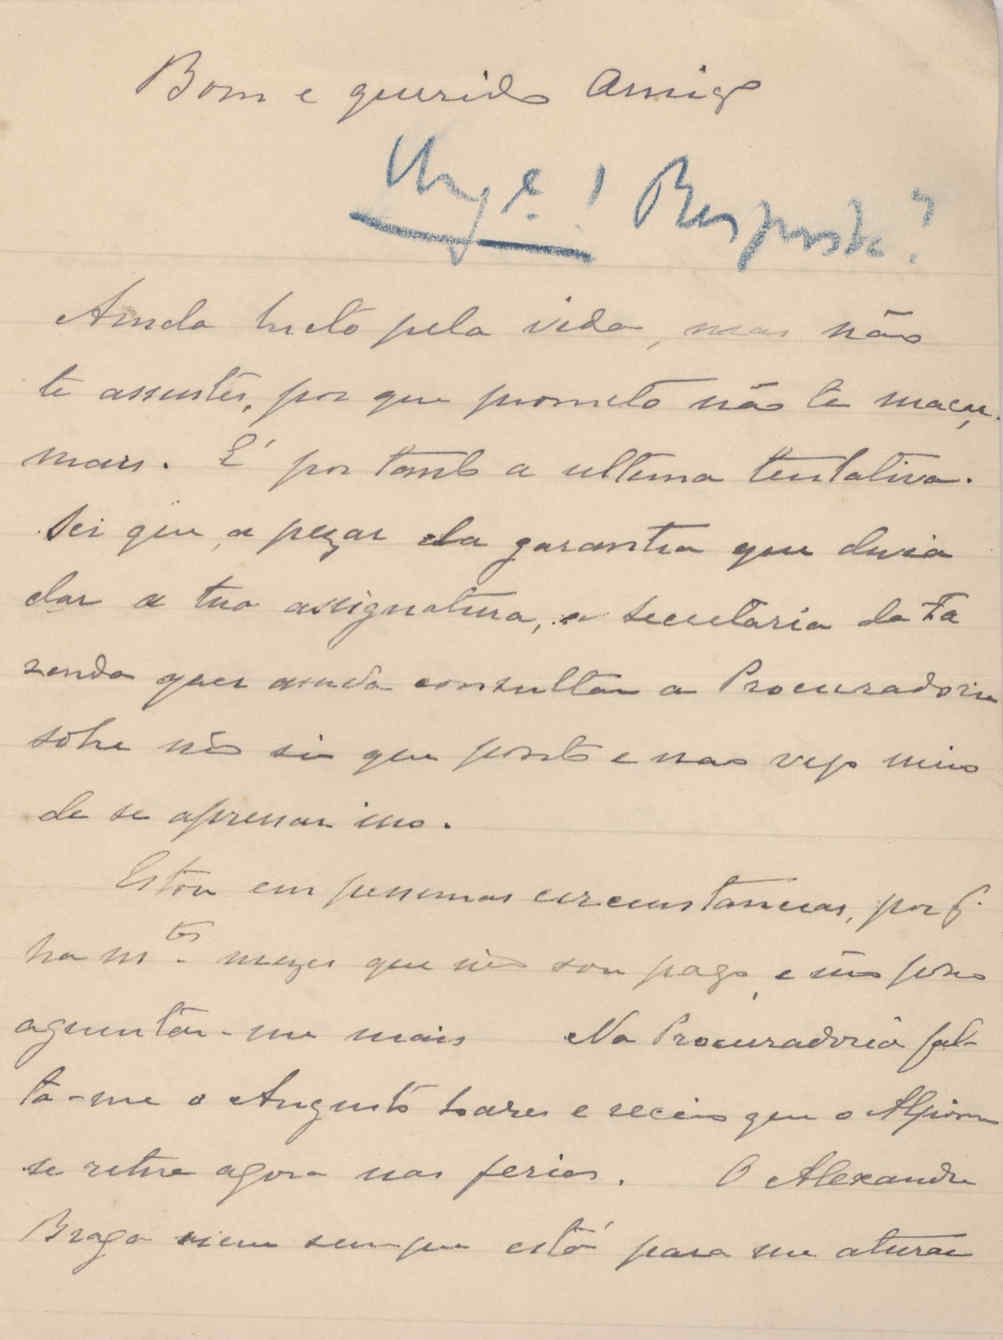 Bom e querido Amigo
Urge! Resposta?
Ainda lucto pela vida, mas não
te assustes, por que prometo não te maçar
mais. É por tanto a ultima tentativa.
Sei que, a pezar da garantia que devia
dar a tua assignatura, a secretaria da Fa
zenda quer ainda consultar a Procuradoria
sobre não sei que ponto e nao vejo meio
de se apressar isso.
Estou em pessimas circumstancias, por q.
ha m.tos mezes que não sou pago, e não posso
aguentar-me mais Na Procuradoria fal-
ta-me o Augusto Soares e receio que o
se retire agora nas ferias. O Alexandre
Braga nem sempre está para me aturar